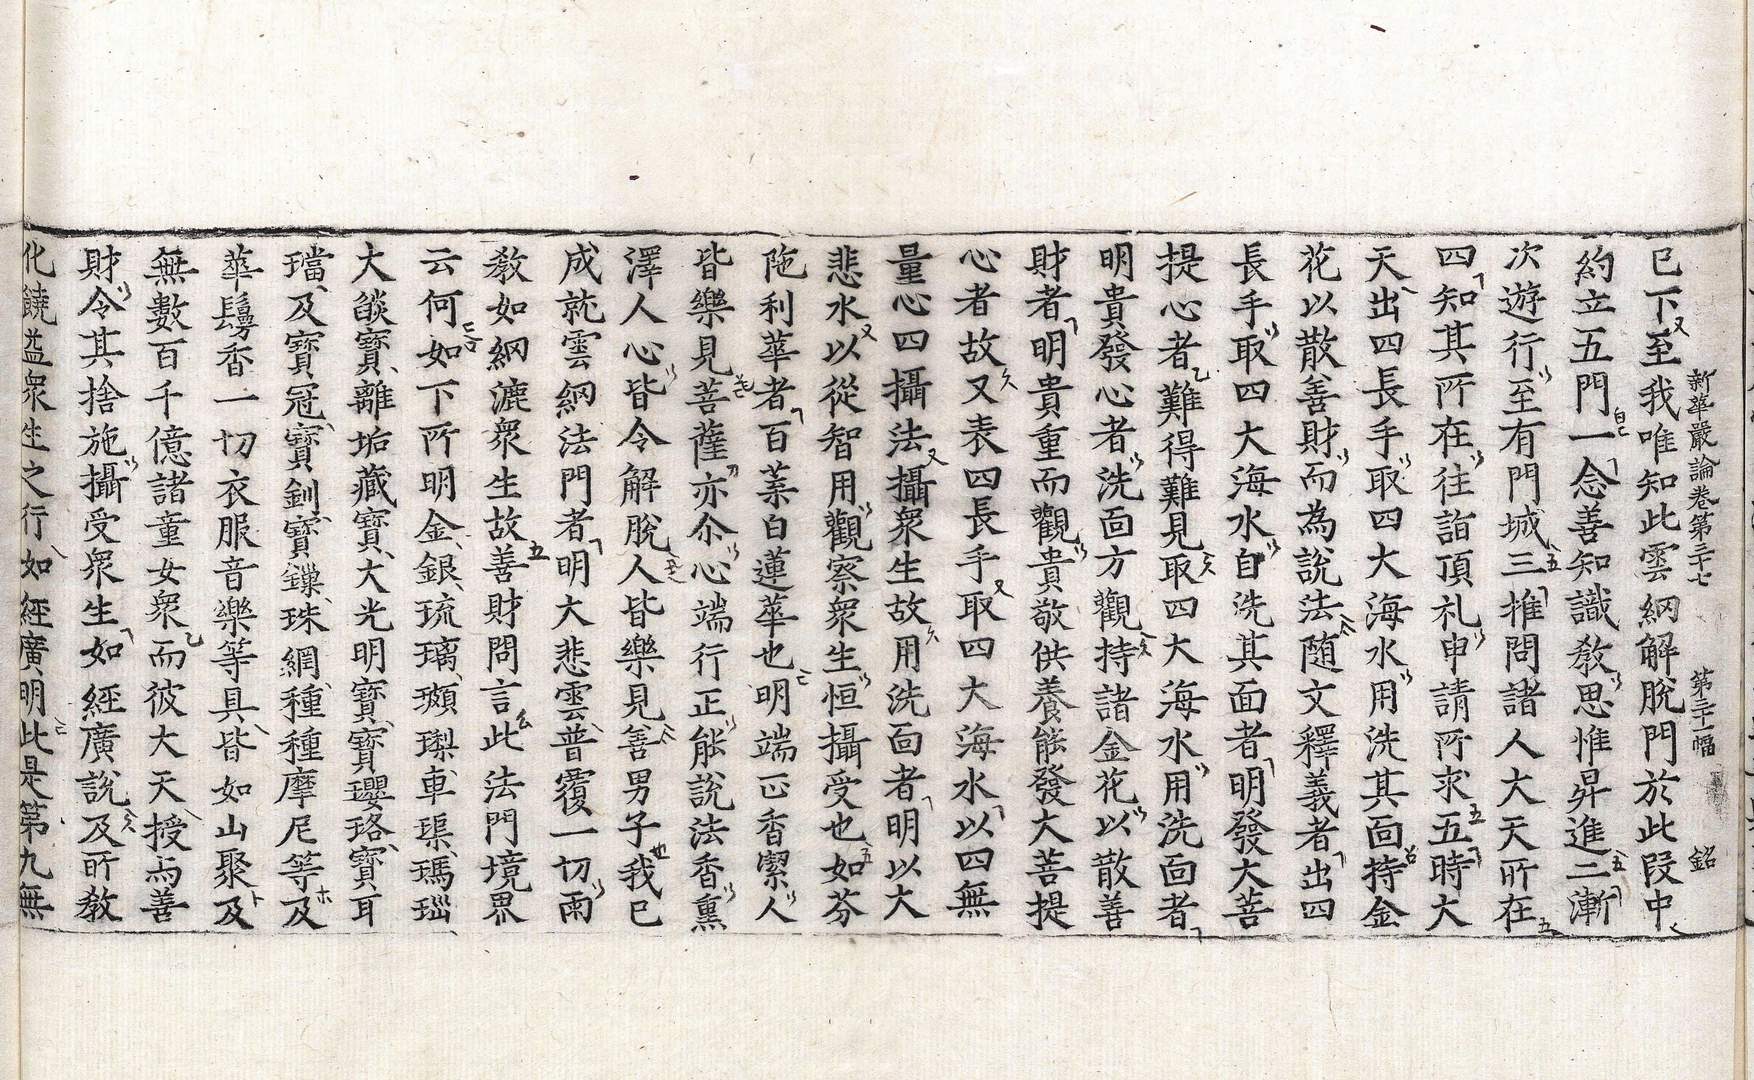 新華嚴論卷第三十七　第三十幅　銘
已下至我唯知此雲網解脫門於此段中
約立五門一念善知識教思惟昇進二漸
次遊行至有門城三推問諸人大天所在
四知其所在往詣頂礼申請所求五時大
天出四長手取四大海水用洗其面持金
花以散善財而為說法随文釋義者出四
長手取四大海水自洗其面者明發大菩
提心者難得難見取四大海水用洗面者
明貴發心者洗面方觀持諸金花以散善
財者明貴重而觀貴敬供養能發大菩提
心者故又表四長手取四大海水以四無
量心四攝法攝衆生故用洗面者明以大
悲水以從智用觀察衆生恒攝受也如芬
陁利華者百葉白蓮華也明端正香潔人
皆樂見菩薩亦尒心端行正能說法香熏
澤人心皆令解脫人皆樂見善男子我已
成就雲網法門者明大悲雲普覆一切雨
教如網漉衆生故善財問言此法門境界
云何如下所明金銀琉璃頗梨車𤦲瑪瑙
大焰寶離垢藏寶大光明寶寶瓔珞寶耳
璫及寶冠寶釧寶鏁珠網種種摩尼等及
華鬘香一切衣服音樂等具皆如山聚及
無數百千億諸童女衆而彼大天授与善
財令其捨施攝受衆生如經廣說及所教
化饒益衆生之行如經廣明此是第九無